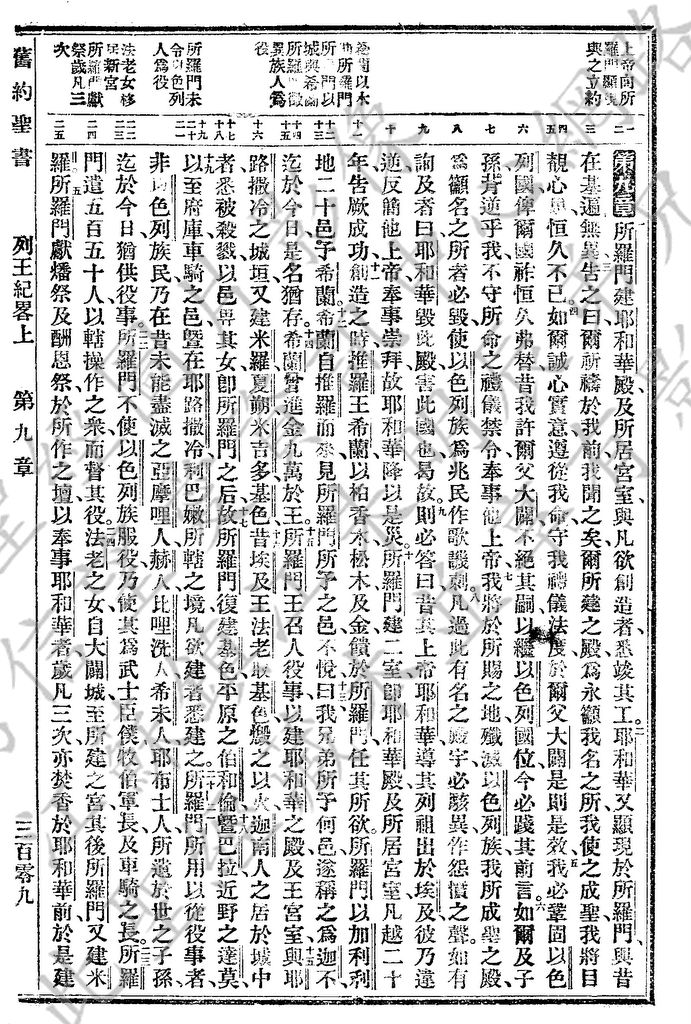 上帝向所
羅門顯現
與之立約
希蘭以木
所羅門
所羅門以
城與希蘭
所羅門徵
異族人爲
役
所羅門未
令以色列
人爲役
法老女移
居新宮
所羅門獻
祭歲凡三
次
一二 三 四五 六 七 八 九 十 十一 十二十三 十四十五 十六 十七十八 十九 二十二一 二二二三 二四 二五
第九章所羅門建耶和華殿及所居宮室與凡欲創造者悉竣其工耶和華又顯現於所羅門與昔
在基遍無異告之曰爾祈禱於我前我聞之矣爾所建之殿爲永籲我名之所我使之成聖我將目
覩心思恒久不已如爾誠心實意遵從我命守我禮儀法度於爾父大闢是則是效我必鞏固以色
列國俾爾國祚恒久弗替昔我許爾父大闢不絕其嗣以繼以色列國位今必踐其前言如爾及子
孫背逆乎我不守所命之禮儀禁令奉事他上帝我將於所賜之地殲滅以色列族我所成聖之殿
爲籲名之所者必毀使以色列族爲兆民作歌譏刺凡過此有名之殿宇必駭異作怨憤之聲如有
詢及者曰耶和華毀此殿害此國也曷故則必答曰昔其上帝耶和華導其列祖出於埃及彼乃違
逆反簡他上帝奉事崇拜故耶和華降以是災所羅門建二室卽耶和華殿及所居宮室凡越二十
年告厥成功創造之時推羅王希蘭以柏香木松木及金饋於所羅門任其所欲所羅門以加利利
地二十邑予希蘭希蘭自推羅而來見所羅門所予之邑不悅曰我兄弟所予何邑遂稱之爲迦不
迄於今日是名猶存希蘭曾進金九萬於王所羅門王召人役事以建耶和華之殿及王宮室與耶
路撒冷之城垣又建米羅夏朔米吉多基色昔埃及王法老取基色燬之以火迦南人之居於城中
者悉被殺戮以邑畀其女卽所羅門之后故所羅門復建基色平原之伯和倫暨巴拉近野之達莫
以至府庫車騎之邑暨在耶路撒冷利巴嫩所轄之境凡欲建者悉建之所羅門所用以從役事者
非以色列族民乃在昔未能盡滅之亞摩哩人赫人比哩洗人希未人耶布士人所遺於世之子孫
迄於今日猶供役事所羅門不使以色列族服役乃使其爲武士臣僕牧伯軍長及車騎之長所羅
門遣五百五十人以轄操作之衆而督其役法老之女自大闢城至所建之宮其後所羅門又建米
羅所羅門獻燔祭及酬恩祭於所作之壇以奉事耶和華者歲凡三次亦焚香於耶和華前於是建
舊約聖書 列王紀畧上 第九章 三百零九